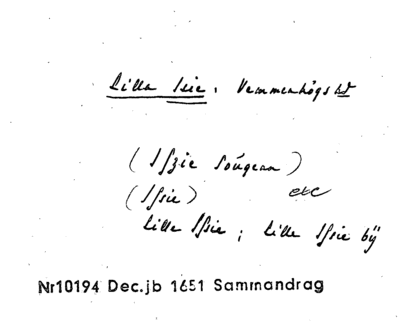 Lilla Isie, Vemmenhögs hd
(Ißzie Soũgenn)
(Ißie) etc
Lille Ißie; Lille Ißie bÿ
Nr10194 Dec.jb 1651 Sammandrag